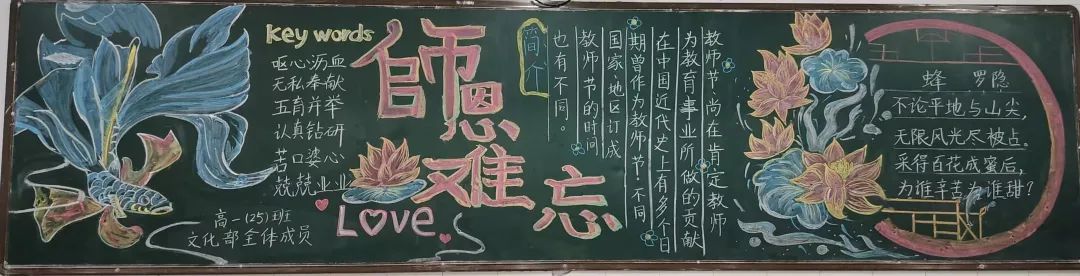 Key words
呕心沥血
无私奉献
五育并举
认真钻研
苦口婆心
兢兢业业
高一(25)班
文化部全体成员
師恩难忘
Love
简介
教师节,尚在肯定教师
为教育事业所做的贡献
在中国近代史上有多个日
期曾作为教师节·不同
国家·地区订成
教师节的时间
也有不同。
蜂 罗隐
不论平地与山尖,
无限风光尽被占。
采得百花成蜜后,
为谁辛苦为谁甜?